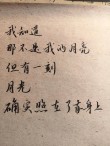 我知道
那不是我的月亮
但有一刻
月亮
确实照在了我身上